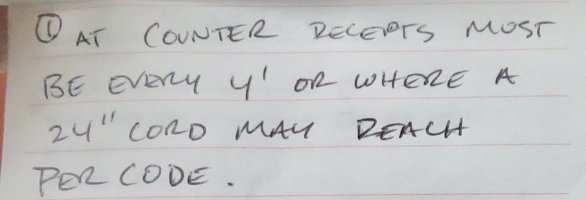 ① AT COUNTER RECEPTS MUST
BE EVERY 4' OR WHERE A
24" CORD MAY REACH
PER CODE.